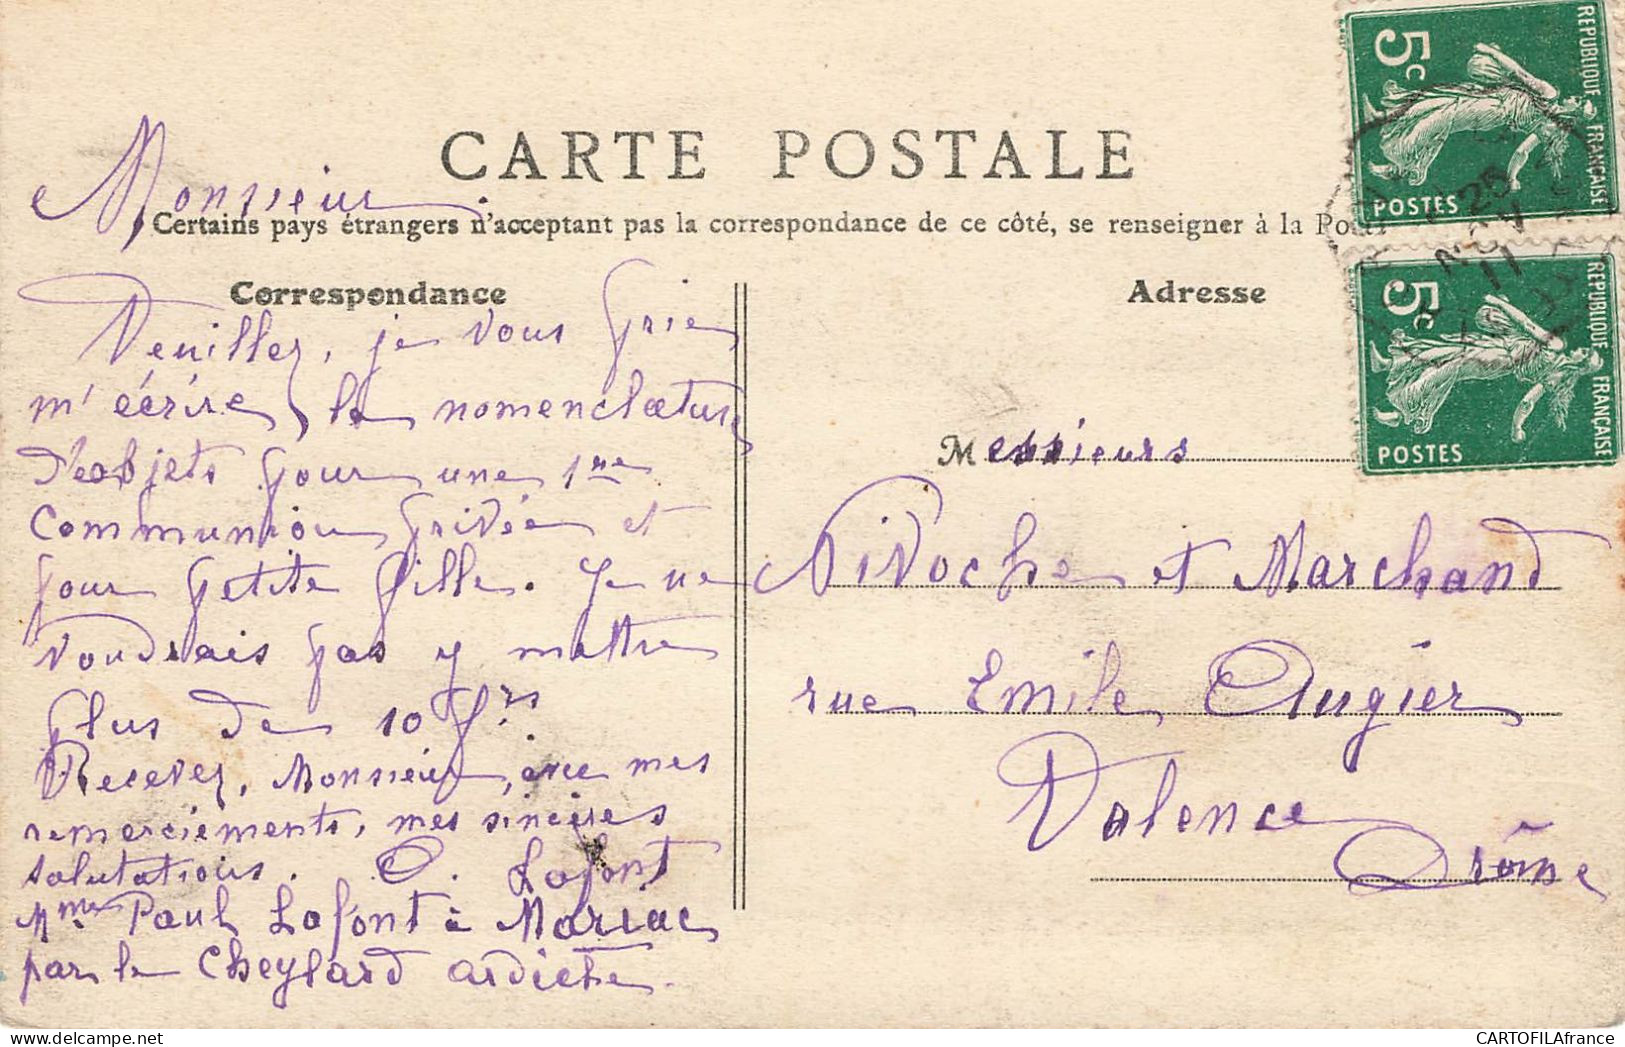 CARTE POSTALE
Monsieur.
Certains pays étrangers n'acceptent pas la correspondance de ce côté, se renseigner à la Poste
Correspondance
Veuillez, je vous prie
m'écrire, la nomenclature
d'objets pour une 1re
Communion privée et
pour petite fille. Je ne
voudrais pas y mettre
plus de 10 frs.
Recevez, Monsieur, avec mes
remerciements, mes sincères
salutations. O. Lafont
Mme Paul Lafont à Mariac
par le Cheylard ardèche.
Adresse
Messieurs
Nivoche et Marchand
rue Emile Augier
Valence
Drôme
REPUBLIQUE FRANÇAISE
5c
POSTES
25
NOV
11
REPUBLIQUE FRANÇAISE
5c
POSTES
CARTOFILAfrance